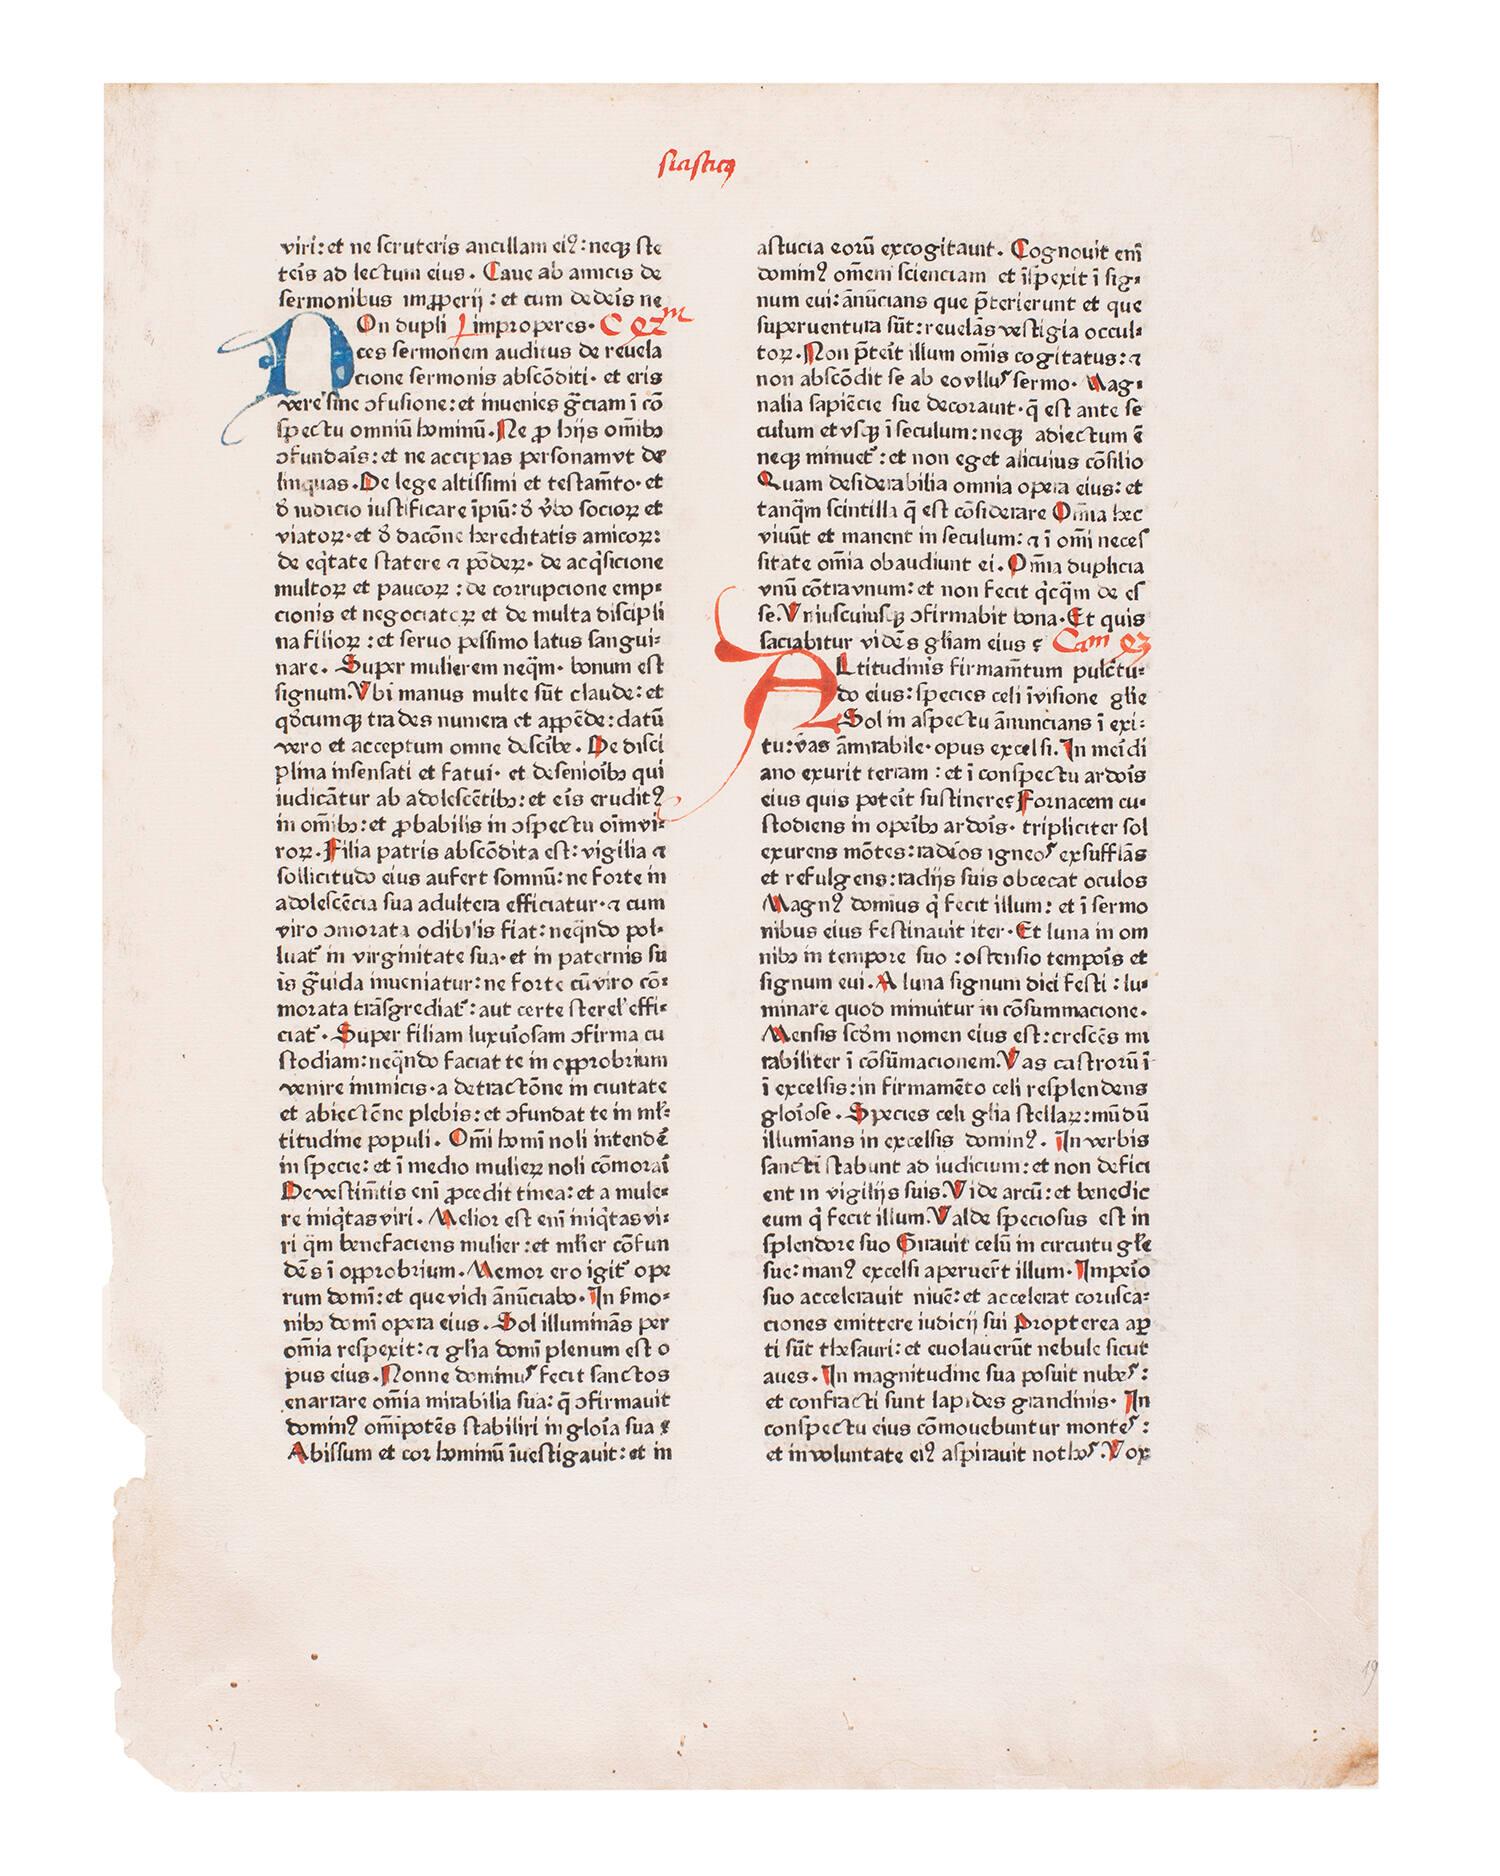 siasticꝰ
viri: et ne scruteris ancillam eiꝰ: neqꝫ ste
teis̄ ad lectum eius. Caue ab amicis de
sermonibus imꝓꝑerij: et cum dedeis̄ ne
On dupli improperes. C xlijm
ces sermonem auditus de reuela
cione sermonis abscōditi. et eris
vere sine ↄfusione: et inuenies gr̄ciam ī cō
spectu omniū hominū. Ne ꝓ hijs om̄ibꝫ
ↄfundaīs: et ne accipias personam vt de
linquas. De lege altissimi et testam̄to. et
đ iudicio iustificare īpiū: đ v̄bo socioꝝ et
viatoꝝ. et đ dacōne hereditatis amicoꝝ:
de eq̄tate statere ⁊ pōdeꝝ. de acq̄sicione
multoꝝ et paucoꝝ: de corrupcione emp-
cionis et negociatoꝝ et de multa discipli
na filioꝝ: et seruo pessimo latus sangui-
nare. Super mulierem neq̄m. bonum est
signum. Vbi manus multe sūt claude: et
qđcumqꝫ trades numera et aꝑpēde: datū
vero et acceptum omne descībe. De disci
plina insensati et fatui. et de senioībꝫ qui
iudicātur ab adolescētibꝫ: et eīs eruditꝰ
in om̄ibꝫ: et ꝓbabilis in ↄspectu oīm vi-
roꝝ. Filia patris abscōdita est: vigilia ⁊
sollicitudo eius aufert somnū: ne forte in
adolescēcia sua adultera efficiatur. ⁊ cum
viro ↄmorata odibilis fiat: neq̄ndo pol-
luat᷑ in virginitate sua. et in paternis su
is gr̄uida inueniatur: ne forte cū viro cō-
morata trāsgrediat᷑: aut certe sterel' effi-
ciat᷑. Super filiam luxuīosam ↄfirma cu
stodiam: neq̄ndo faciat te in oꝓprobrium
venire inimicis. a detractōne in ciuitate
et abiectōne plebis: et ↄfundat te in ml̄-
titudine populi. Om̄i homī noli intendē
in specie: et ī medio mulieꝝ noli cōmoraī
De vestim̄tis enī ꝓcedit tinea: et a mule-
re iniq̄tas viri. Melior est enī iniq̄tas vi-
ri q̄m benefaciens mulier: et ml̄ier cōfun
dēs ī oꝓprobrium. Memor ero igit᷑ ope
rum domī: et que vidi ānūciabo. In s̄mo-
nibꝫ domī opera eius. Sol illuminās per
om̄ia respexit: ⁊ gl̄ia domī plenum est o
pus eius. Nonne dominus fecit sanctos
enarrare om̄ia mirabilia sua: q̄ ↄfirmauit
dominꝰ om̄ipotēs stabiliri in gloīa sua ?
Abissum et cor hominū īuestigauit: et in
astucia eorū excogitauit. Cognouit enī
dominꝰ om̄em scienciam et īspexit ī sig-
num eui: ānūcians que p̄terierunt et que
superuentura sūt: reuelās vestigia occul-
toꝝ. Non p̄teīt illum om̄is cogitatus: ⁊
non abscōdit se ab eo vllus sermo. Mag-
nalia sapiēcie sue decorauit. q̄ est ante se
culum et vsqꝫ ī seculum: neqꝫ adiectum ē
neqꝫ minuet᷑: et non eget alicuius cōsilio
Quam desiderabilia omnia opera eius: et
tanq̄m scintilla q̄ est cōsiderare Om̄ia hec
viuūt et manent in seculum: ⁊ ī om̄i neces
sitate om̄ia obaudiunt ei. Om̄ia duplicia
vnū cōtra vnum: et non fecit q̄cq̄m de es
se. Vniuscuiusqꝫ ↄfirmabit bona. Et quis
saciabitur vidēs gl̄iam eius ? Cam xliij
Ltitudinis firmam̄tum pulctu-
do eius: species celi īvisione gl̄ie
Sol in aspectu ānuncians ī exi-
tu: vas āmirabile. opus excelsi. In meīdi
ano exurit terram: et ī conspectu ardoīs
eius quis poteīt sustinere? Fornacem cu-
stodiens in opeībꝫ ardoīs. tripliciter sol
exurens mōtes: radios igneos exsufflās
et refulgens: radijs suis obcecat oculos
Magnꝰ domius q̄ fecit illum: et ī sermo
nibus eius festinauit iter. Et luna in om
nibꝫ in tempore suo: ostensio tempoīs et
signum eui. A luna signum diei festi: lu-
minare quod minuitur in cōsummacione.
Mensis scđm nomen eius est: crescēs mi
rabiliter ī cōsūmacionem. Vas castrorū ī-
ī excelsis: in firmamēto celi resplendens
gloīose. Species celi gl̄ia stellaꝝ: mūdū
illumīans in excelsis dominꝰ. In verbis
sancti stabunt ad iudicium: et non defici
ent in vigilijs suis. Vide arcū: et benedic
eum q̄ fecit illum. Valde speciosus est in
splendore suo Girauit celū in circuitu gl̄e
sue: manꝰ excelsi aperuert̄ illum. Impeīo
suo accelerauit niuē: et accelerat corusca-
ciones emittere iudicij sui Propterea aꝑ
ti sūt thesauri: et euolauerūt nebule sicut
aues. In magnitudine sua posuit nubes:
et confracti sunt lapides grandinis. In
conspectu eius cōmouebuntur montes:
et in voluntate eiꝰ aspirauit nothos. Vox
19